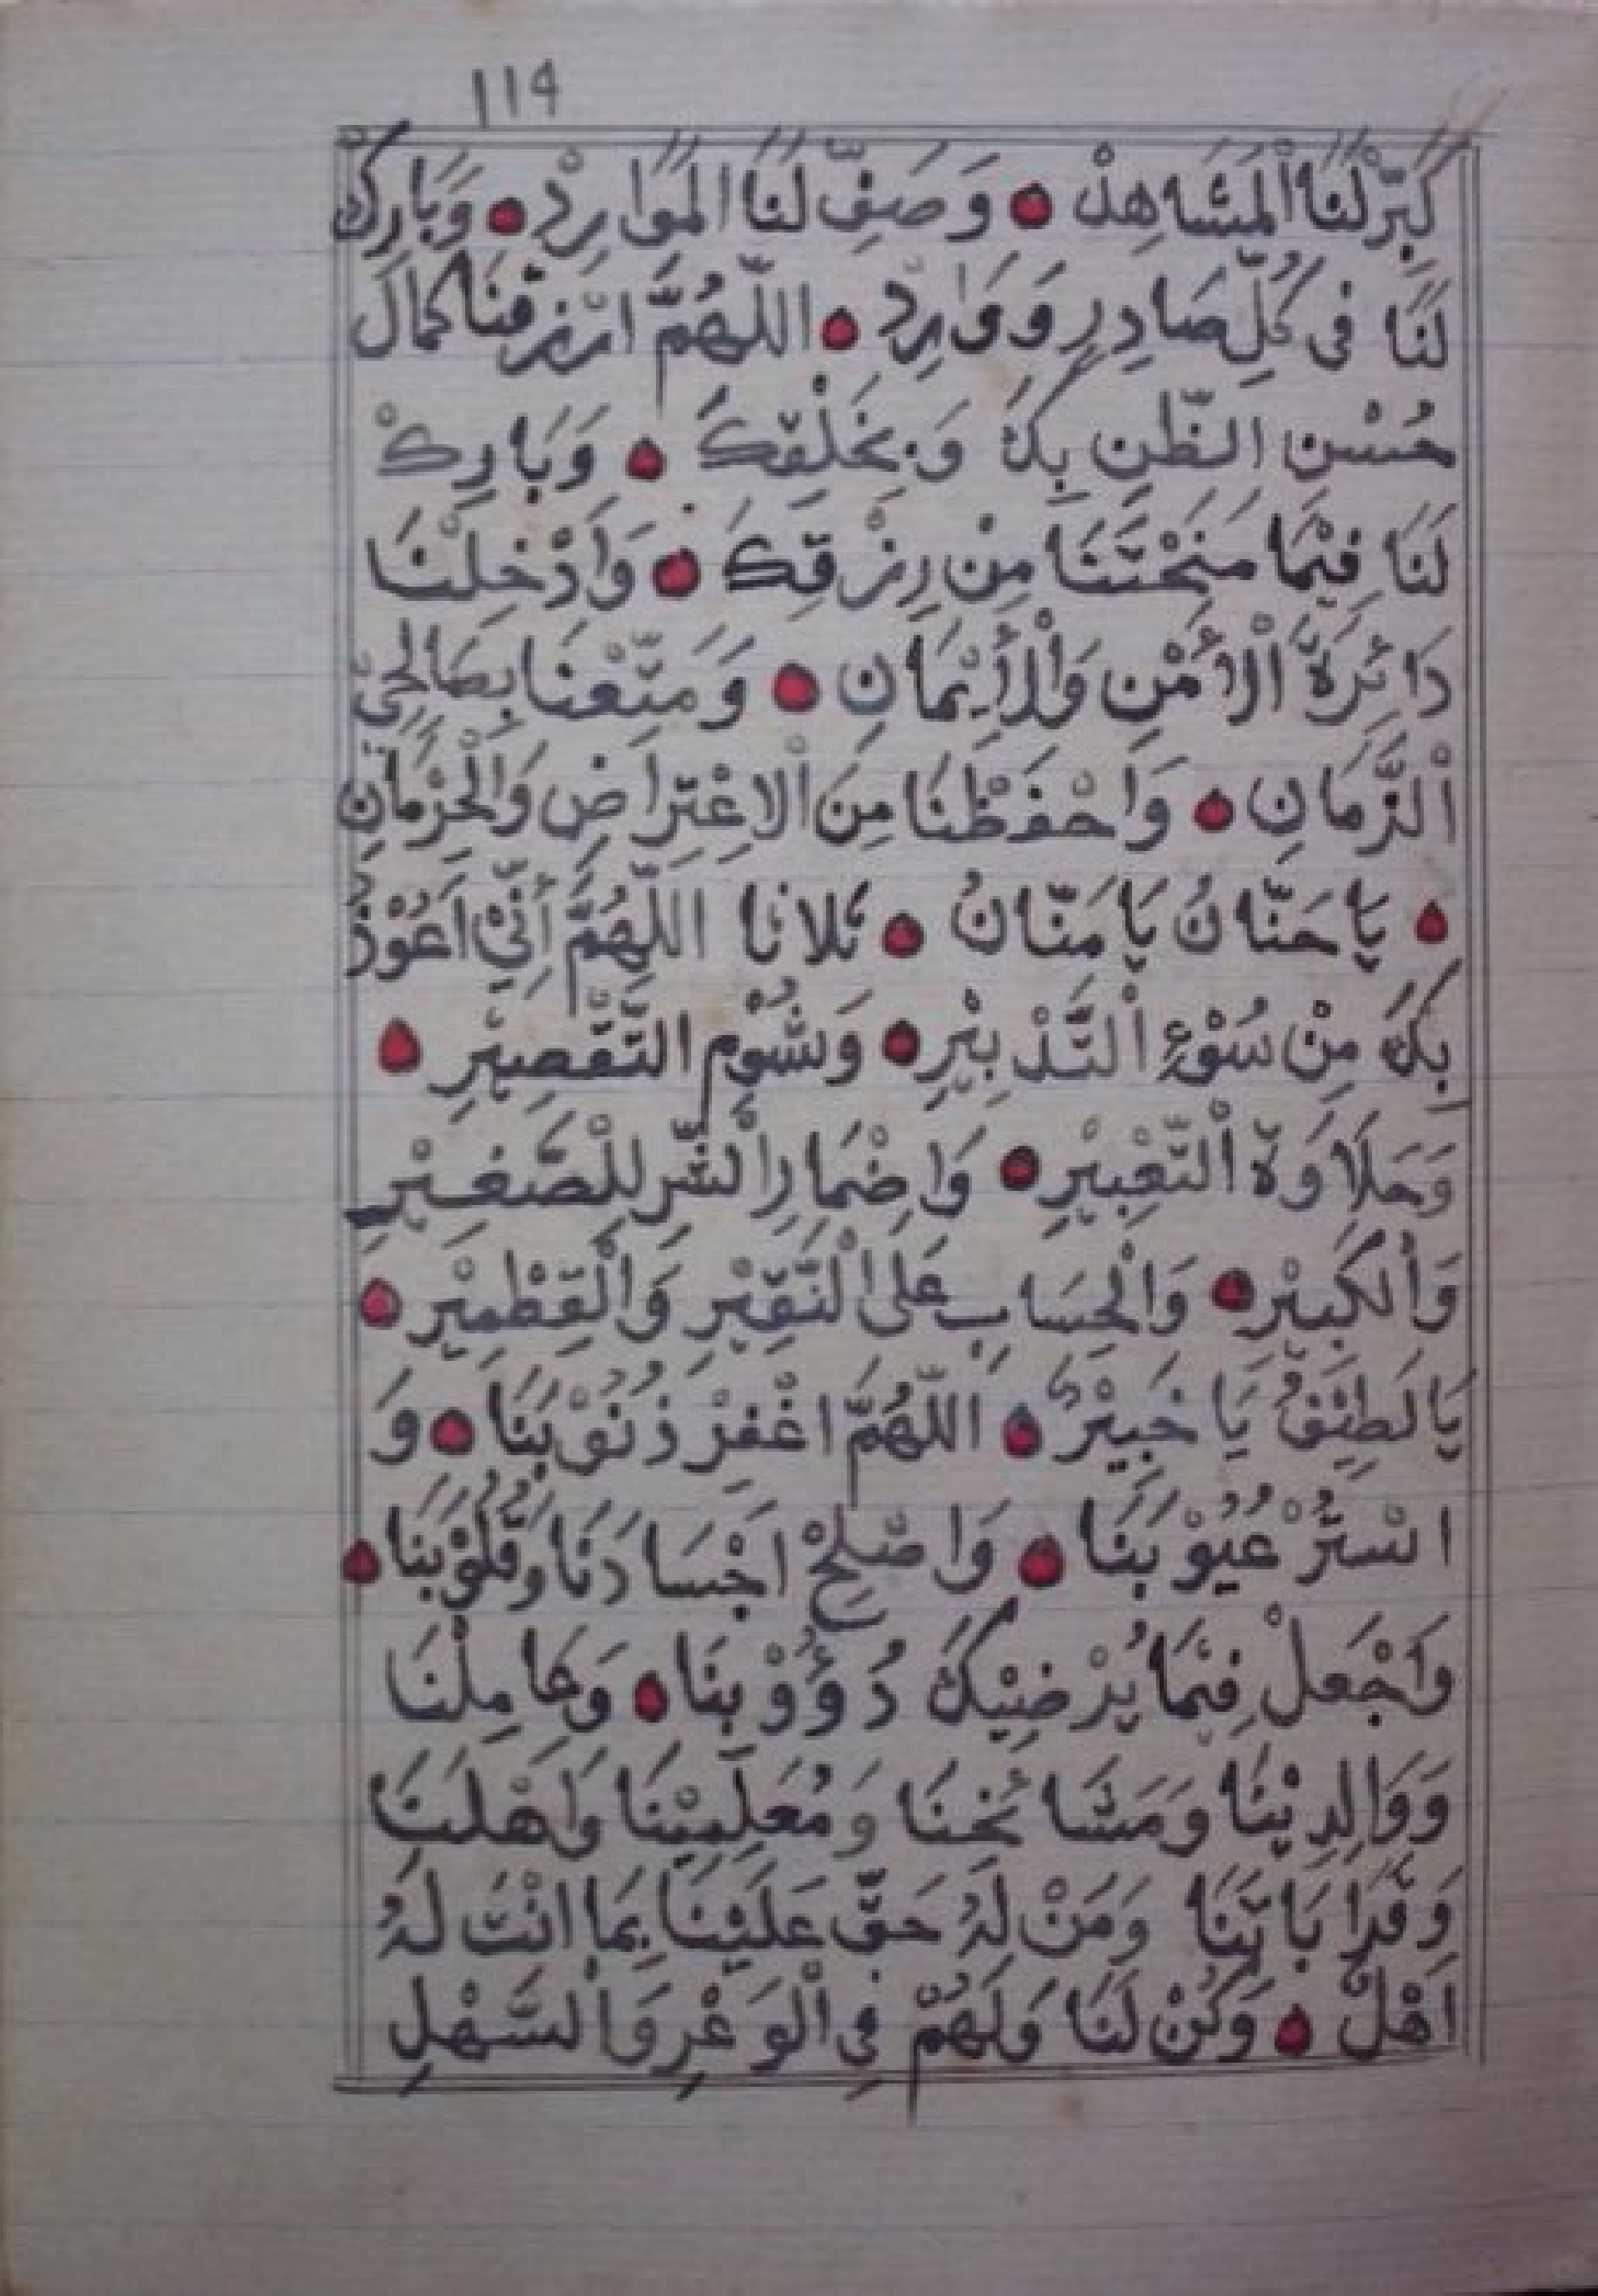 119
كَبِّرْ لَنَا الْمَشَاهِدْ ۝ وَصَفِّ لَنَا الْمَوَارِدْ ۝ وَبَارِكْ
لَنَا فِى كُلِّ صَادِرٍ وَوَارِدْ ۝ اللّهُمَّ ارْزِقْنَا كَمَالَ
حُسْنِ الظَّنِ بِكَ وَبِخَلْقِكَ ۝ وَبَارِكْ
لَنَا فِيْمَا مَنَحْتَنَا مِنْ رِزْقِكَ ۝ وَاَدْخِلْنَا
دَائِرَةَ الْأَمْنِ وَالْأِيْمَانِ ۝ وَمَتِّعْنَا بِصَالِحِيْ
اْلزَّمَانِ ۝ وَاحْفَظْنَا مِنَ اْلاِعْتِرَاضِ وَالْحِرْمَانِ
۝ يَا حَنَّانُ يَا مَنَّانُ ۝ ثلاثا اللّهُمَّ أِنِّيْ اَعُوْذُ
بِكَ مِنْ سُوْءِ اْلتَّدْبِيْرِ ۝ وَشُوْمِ التَّقْصِيْرِ ۝
وَحَلَاوَةِ اْلتَّعْبِيْرِ ۝ وَاِضْمَارِ اْلشَّرِ لِلْصَّغِيْرِ
وَاْلكَبِيْرِ ۝ وَالْحِسَابِ عَلىَ اْلنَّقِيْرِ وَالْقِطْمِيْرِ ۝
يَا لَطِيْفُ يَا خَبِيْرُ ۝ اللّهُمَّ اغْفِرْ ذُنُوْبَنَا ۝ وَ
اسْتُرْ عُيُوْبَنَا ۝ وَاصْلِحْ اَجْسَادَنَا وَقُلُوْبَنَا ۝
وَاجْعَلْ فِيْمَا يُرْضِيْكَ دُؤُوْبَنَا ۝ وَعَامِلْنَا
وَوَالِدِيْنَا وَمَشَائِخِنَا وَمُعَلِّمِيْنَا وَاَهْلِنَا
وَقَرَابَاتِنَا وَمَنْ لَهُ حَقٌّ عَلَيْنَا بِمَا اَنْتَ لَهُ
اَهْلٌ ۝ وَكُنْ لَنَا وَلَهُمْ فِى اْلوَعْرِ وَاْلسَّهْلِ